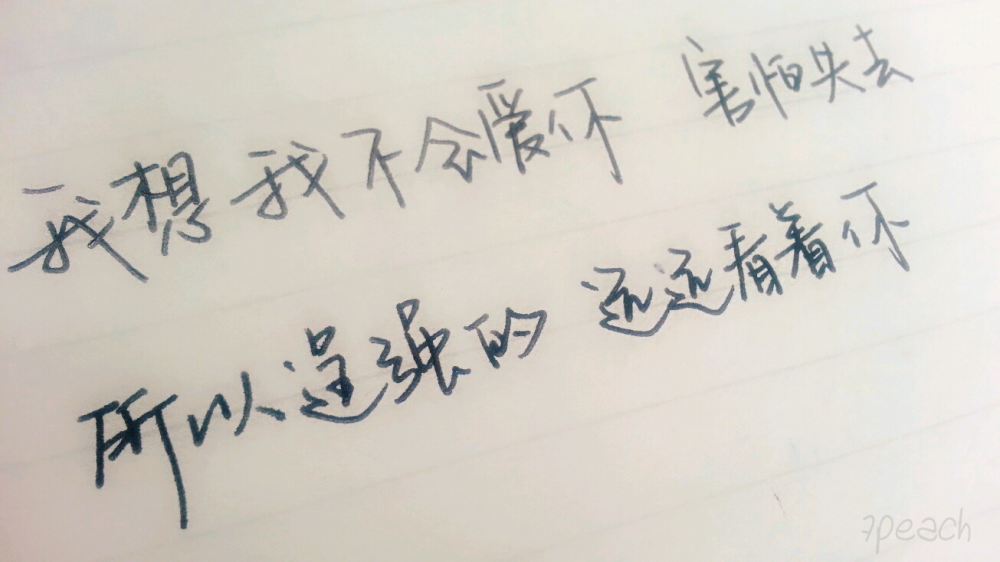 我想我不会爱你 害怕失去
所以逞强的 远远看着你
7peach